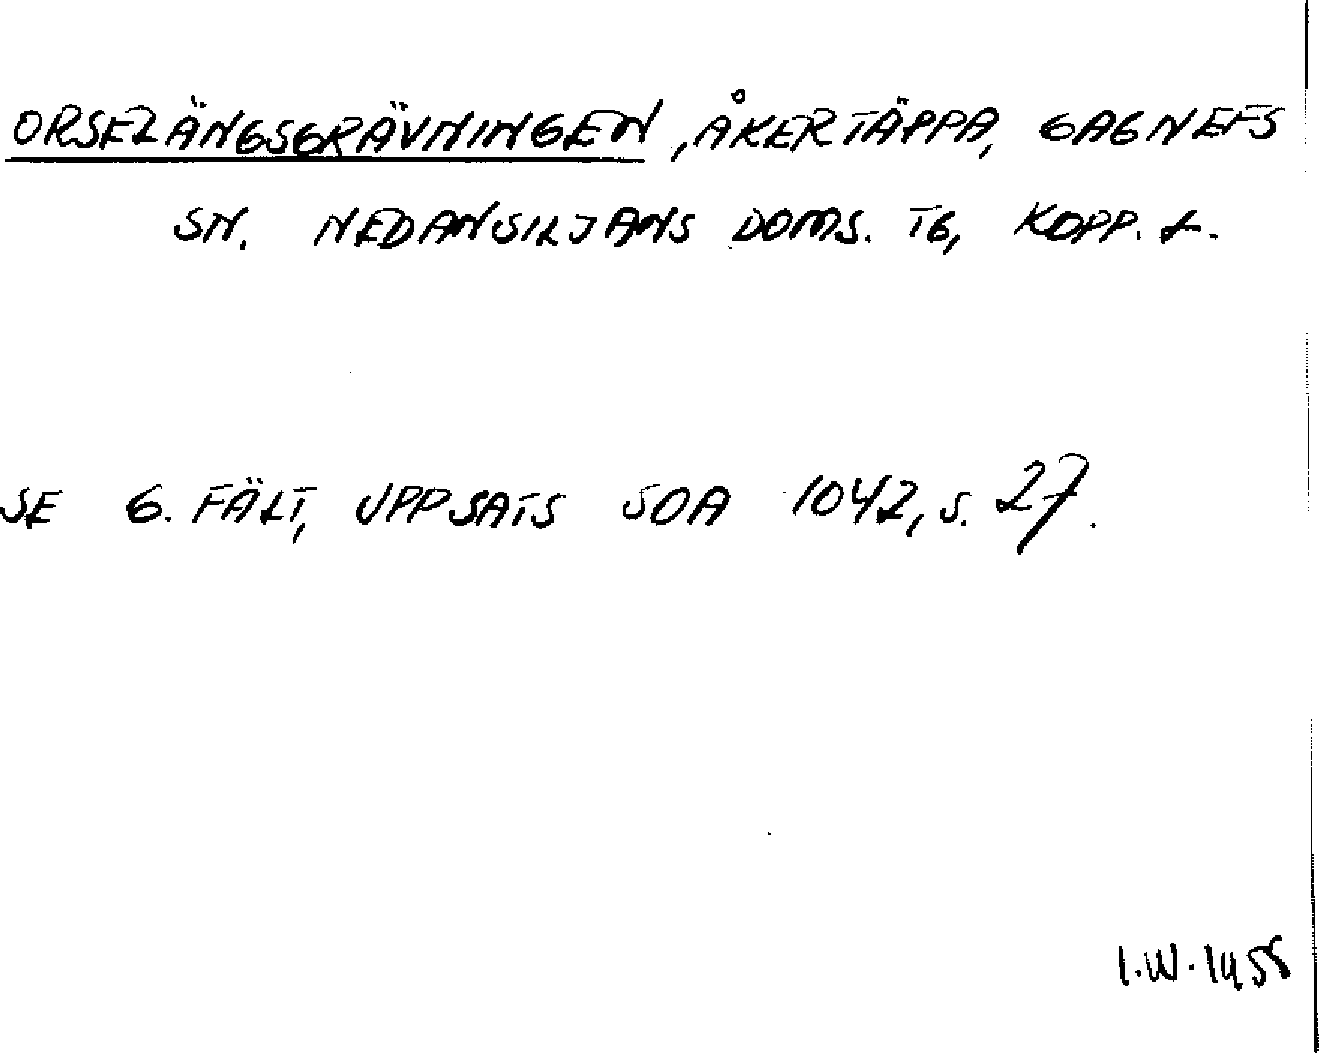 ORSELÄNGSGRÄVNINGEN, ÅKERTÄPPA, GAGNEFS
SN. NEDANSILJANS DOMS. TG, KOPP. L.
SE G. FÄLT, UPPSATS SOA 1042, S. 27.
I.W. 1955